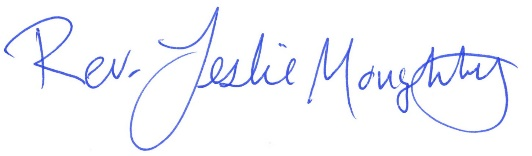 Rev. Leslie Moughtby